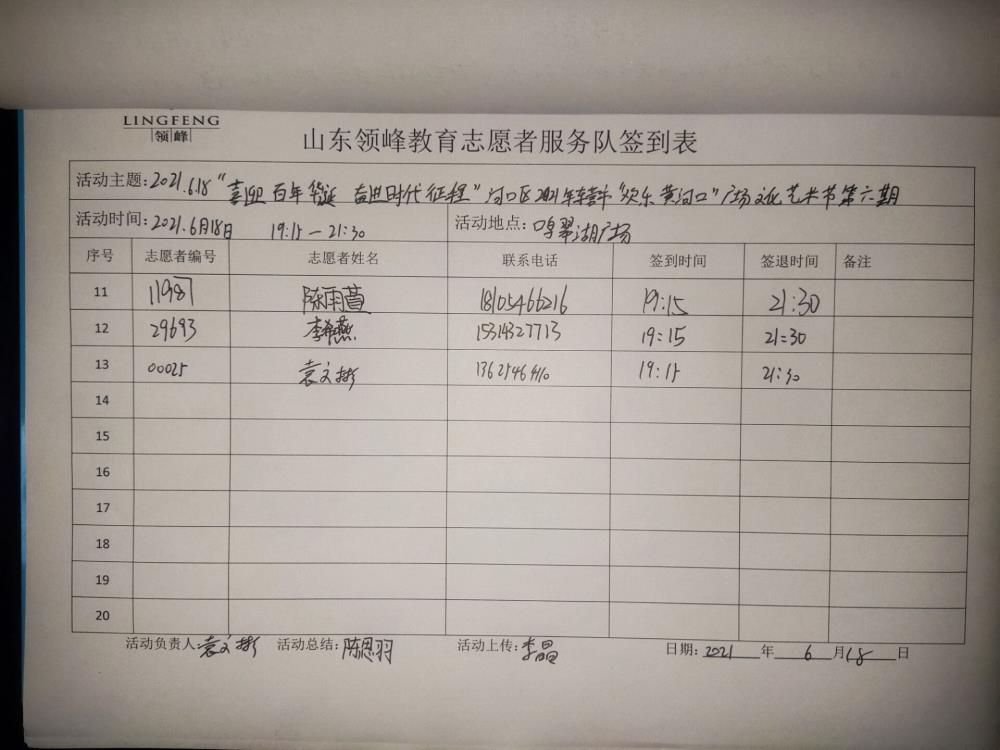 LINGFENG
领峰
山东领峰教育志愿者服务队签到表
活动主题:2021.6.18"喜迎百年华诞 奋进时代征程"河口区2021年"欢乐黄河口"广场文化艺术节第六期
活动时间:2021.6月18日 19:15-21:30 活动地点:鸣翠湖广场
序号 志愿者编号 志愿者姓名 联系电话 签到时间 签退时间 备注
11 11987 陈雨萱 18105466216 19:15 21:30
12 29693 李希燕 15314327713 19:15 21:30
13 00025 袁文彬 19:15 21:30
14
15
16
17
18
19
20
活动负责人:袁文彬 活动总结:陈思羽 活动上传:李晶 日期:2021年6月18日